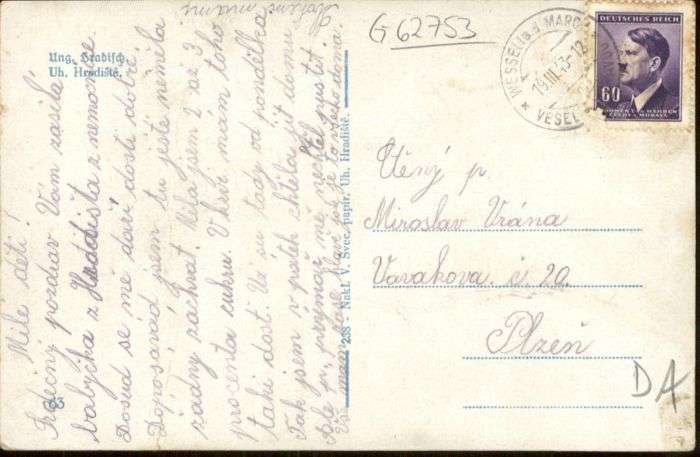 Ung. Hradisch.
Uh. Hradiště.
Milé děti!
Srdečný pozdrav Vám zasílá
babyčka z Hradišťa z nemocnice
Dosud se mě daří dosti dobře
Doposavád jsem tu ještě neměla
žádny záchvat. Měla jsem 2 až 3
procenta cukru. V krvi mám toho
taki dost. Už su tady od pondělka
Tak jsem v pátek chtěla jít domu
ale primář mě nechtěl pustit
238 - Nakl. V. Švec, papír, Uh. Hradiště.
G 62753
WESSELI a.d. MARCH
19.III.43-12
VESEL
DEUTSCHES REICH
60
BÖHMEN U. MÄHREN
ČECHY A MORAVA
Ctěný p.
Miroslav Vrána
Varakova. č 20.
Plzeň
DA